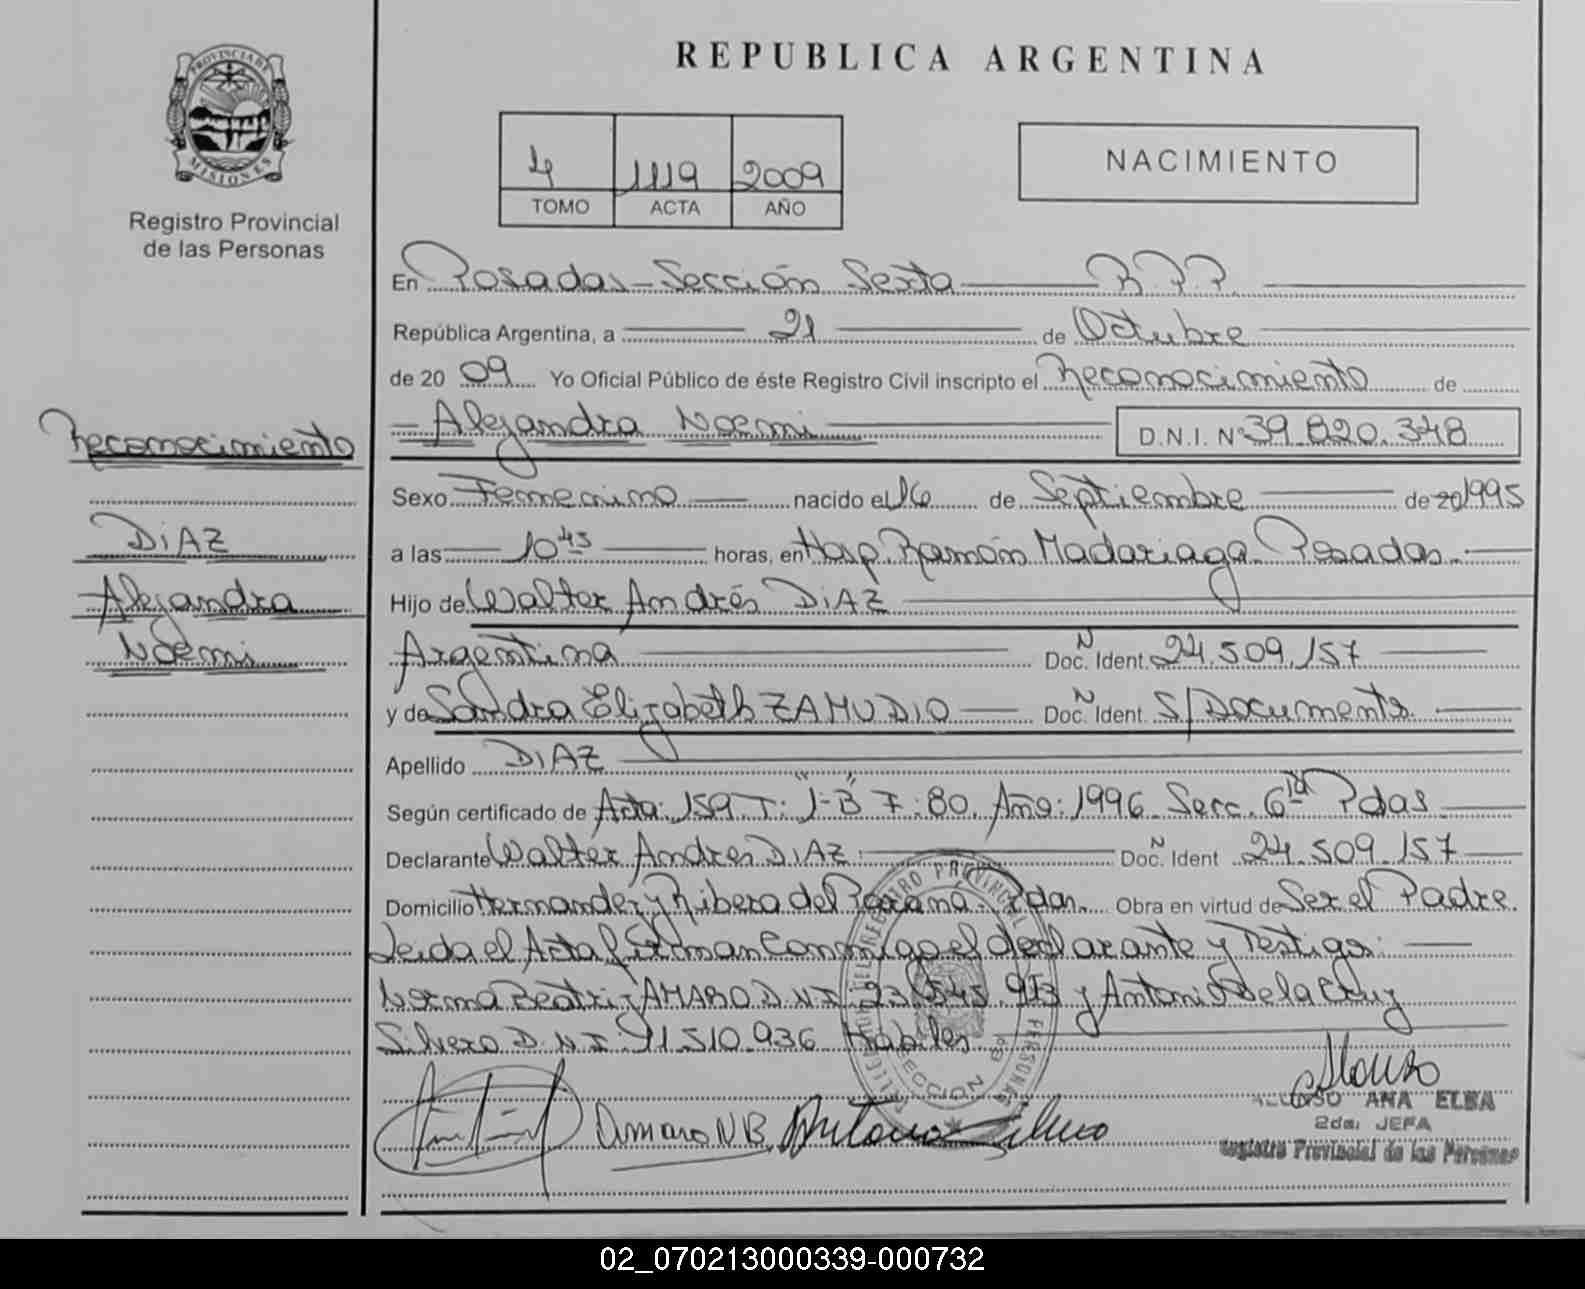 PROVINCIA DE
MISIONES
Registro Provincial
de las Personas
REPUBLICA ARGENTINA
4 1119 2009
TOMO ACTA AÑO
NACIMIENTO
En Posadas - Sección Sexta R.P.P.
República Argentina, a 21 de Octubre
de 20 09 Yo Oficial Público de éste Registro Civil inscripto el Reconocimiento de
Alejandra Noemi D.N.I. Nº 39.820.348
Reconocimiento
DIAZ
Alejandra
Noemi
Sexo Femenino nacido el 16 de Septiembre de 20 1995
a las 10 45 horas, en Hosp. Ramón Madariaga - Posadas.
Hijo de Walter Andrés DIAZ
Argentina Doc. Ident. N 24.509.157
y de Sandra Elizabeth ZAMUDIO Doc. Ident. N S/Documento
Apellido DIAZ
Según certificado de Acta: 159. T: "1-B" F: 80. Año: 1996. Secc. 6ta Pdas
Declarante Walter Andres DIAZ Doc. Ident N 24.509.157
Domicilio Hernandez y Ribera del Paraná. Pdas. Obra en virtud de Ser el Padre.
Leida el Acta firman Conmigo el declarante y Testigos:
Norma Beatriz AMARO D.N.I. 23.545.913 y Antonio De la Cruz
Silvero D.N.I. 11.510.936 Habiles
Amaro N B Antonio Silvero
ALONSO ANA ELBA
2da. JEFA
Registro Provincial de las Personas
02_070213000339-000732